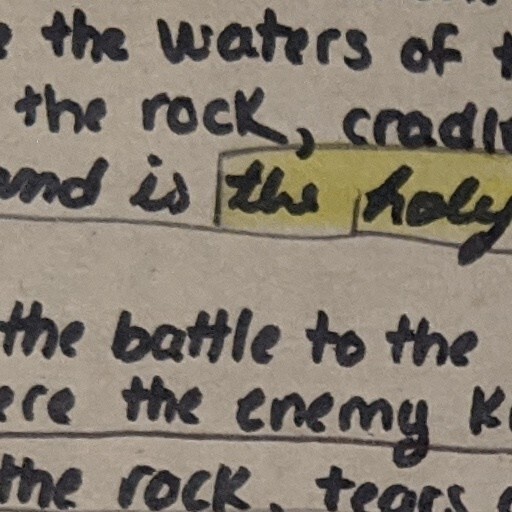 the waters of
the rock, cradle
and is the holy
the battle to the
the enemy
the rock, tears